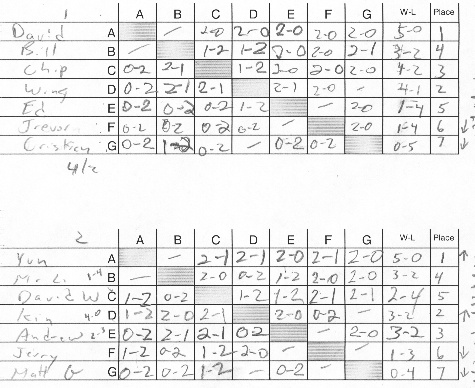 1 A B C D E F G W-L Place
David A — 2-0 2-0 2-0 2-0 2-0 5-0 1
Bill B — 1-2 1-2 2-0 2-0 2-1 3-2 4
Chip C 0-2 2-1 1-2 2-0 2-0 2-0 4-2 3
Wing D 0-2 2-1 2-1 2-1 2-0 — 4-1 2
Ed E 0-2 0-2 0-2 1-2 — 2-0 1-4 5
Trevor F 0-2 0-2 0-2 0-2 — 2-0 1-4 6 ↓
G 0-2 1-2 0-2 — 0-2 0-2 0-5 7 ↓
2 A B C D E F G W-L Place
Yun A — 2-1 2-1 2-0 2-1 2-0 5-0 1 ↑
B — 2-0 0-2 1-2 2-0 2-0 3-2 4
David W C 1-2 0-2 1-2 1-2 2-1 2-1 2-4 5
D 1-2 2-0 2-1 2-0 0-2 — 3-2 2 ↑
Andrew E 0-2 2-1 2-1 0-2 — 2-0 3-2 3
Jerry F 1-2 0-2 1-2 2-0 — — 1-3 6 ↓
Matt G G 0-2 0-2 1-2 — 0-2 — 0-4 7 ↓